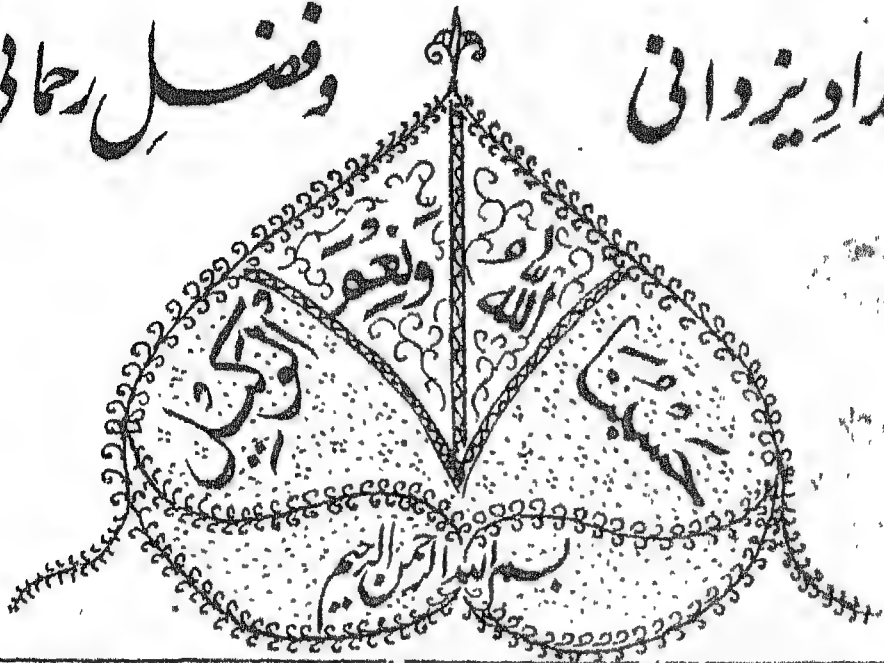 یزدانی وفضلِ رحمانی
حسبنا اللہ ونعم الوکیل
بسم اللہ الرحمن الرحیم